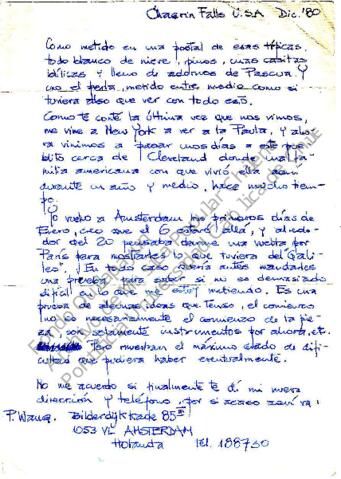 Chagrin Falls U.S.A Dic. '80
Como metido en una postal de esas típicas,
todo blanco de nieve, pinos, unas casitas
idílicas y lleno de adornos de Pascua. Y
uno el perla, metido entre medio como si
tuviera algo que ver con todo esto.
Como te conté la última vez que nos vimos,
me vine a New York a ver a la Paula, y aho
ra vinimos a pasar unos días a este pue
blito cerca de Cleveland donde una fa
milia americana con que vivió ella
durante un año y medio, hace mucho tiem
po.
Yo vuelvo a Amsterdam los primeros días de
Enero, creo que el 6 estaré allá, y alrede
dor del 20 pensaba darme una vuelta por
París para mostrarles lo que tuviera del "Gali
leo". En todo caso quería antes mandarles
una prueba para saber si es demasiado
difícil en lo que me estoy metiendo. Es una
prueba de algunas ideas que tengo, el comienzo
no es necesariamente el comienzo de la pie
za y son solamente instrumentos por ahora, et.
Pero muestran el máximo estado de difi
cultad que pudiera haber eventualmente.
No me acuerdo si finalmente te dí mi nueva
dirección y teléfono, por si acaso aquí va:
P. Wang. Bilderdijkkade 85
1053 VL AMSTERDAM
Holanda tel. 188730